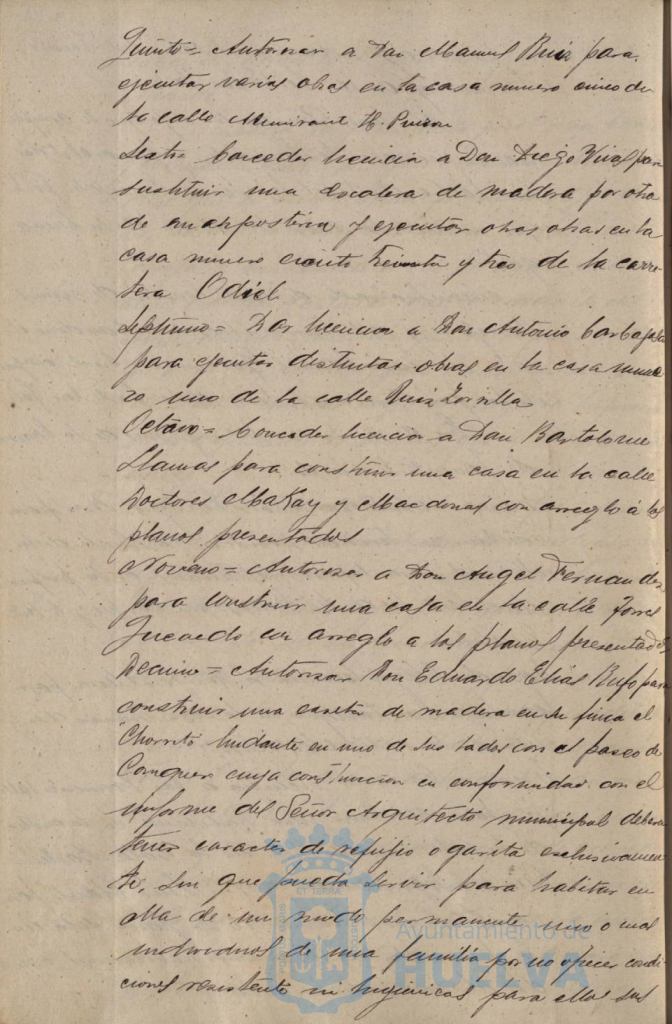 Quinto = Autorizar a Don Manuel Ruiz para
ejecutar varias obras en la casa numero cinco de
la calle Almirante H. Pinzon
Sexto Conceder licencia a Don Diego Vival para
sustituir una escalera de madera por otra
de mamposteria y ejecutar otras obras en la
casa numero ciento treinta y tres de la carre-
tera Odiel
Septimo = Dar licencia a Don Antonio Carbajal
para ejecutar distintas obras en la casa nume-
ro uno de la calle Ruiz Zorrilla
Octavo = Conceder licencia a Don Bartolome
Llamas para construir una casa en la calle
Doctores MaKay y Macdonal con arreglo á los
planos presentados
Noveno = Autorizar a Don Angel Fernandez
para construir una casa en la calle
con arreglo a los planos presentados
Decimo = Autorizar Don Eduardo Elias Rufo para
construir una caseta de madera en su finca el
"Chorrito lindante en uno de sus lados con el paseo de
Conquero cuya construccion en conformidad con el
informe del Señor Arquitecto municipal debera
tener caracter de refugio o garita exclusivamen-
te, sin que pueda servir para habitar en
ella de un modo permanente uno o mas
individuos de una familia por no ofrecer condi-
ciones resistente ni higienicas para ellos sus
Ayuntamiento de
HUELVA